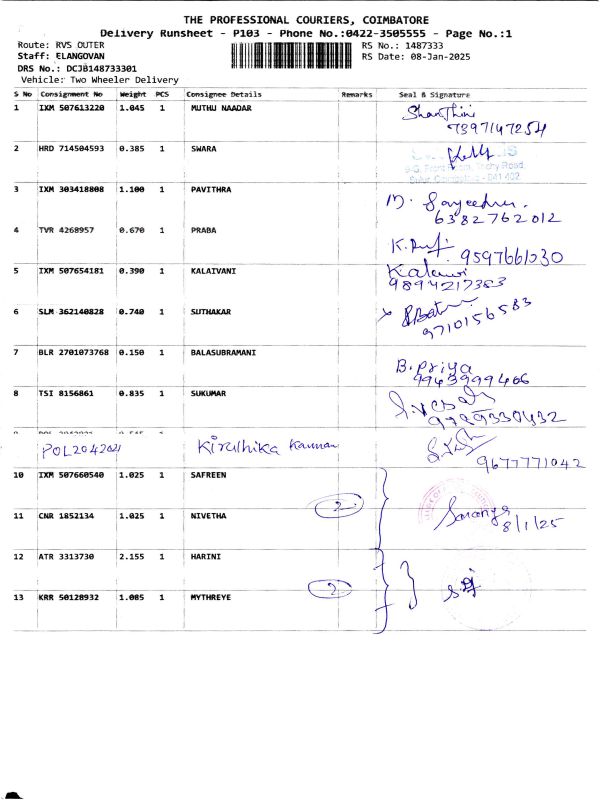 THE PROFESSIONAL COURIERS, COIMBATORE
Delivery Runsheet - P103 - Phone No.:0422-3505555 - Page No.:1
Route: RVS OUTER RS No.: 1487333
Staff: ELANGOVAN RS Date: 08-Jan-2025
DRS No.: DCJB148733301
Vehicle: Two Wheeler Delivery
S No Consignment No Weight PCS Consignee Details Remarks Seal & Signature
1 IXM 507613220 1.045 1 MUTHU NAADAR Shanthini
7397147254
2 HRD 714504593 0.385 1 SWARA
3 IXM 303418808 1.100 1 PAVITHRA
6382762012
4 TVR 4268957 0.670 1 PRABA
9597661030
5 IXM 507654181 0.390 1 KALAIVANI
9894217383
6 SLM 362140828 0.740 1 SUTHAKAR
9710156583
7 BLR 2701073768 0.150 1 BALASUBRAMANI
B. Priya
9943999406
8 TSI 8156861 0.835 1 SUKUMAR
POL2042021 Kiruthika Kannan
9677771042
10 IXM 507660540 1.025 1 SAFREEN
2
11 CNR 1852134 1.025 1 NIVETHA Saranya
8/1/25
12 ATR 3313730 2.155 1 HARINI
2
13 KRR 50128932 1.085 1 MYTHREYE